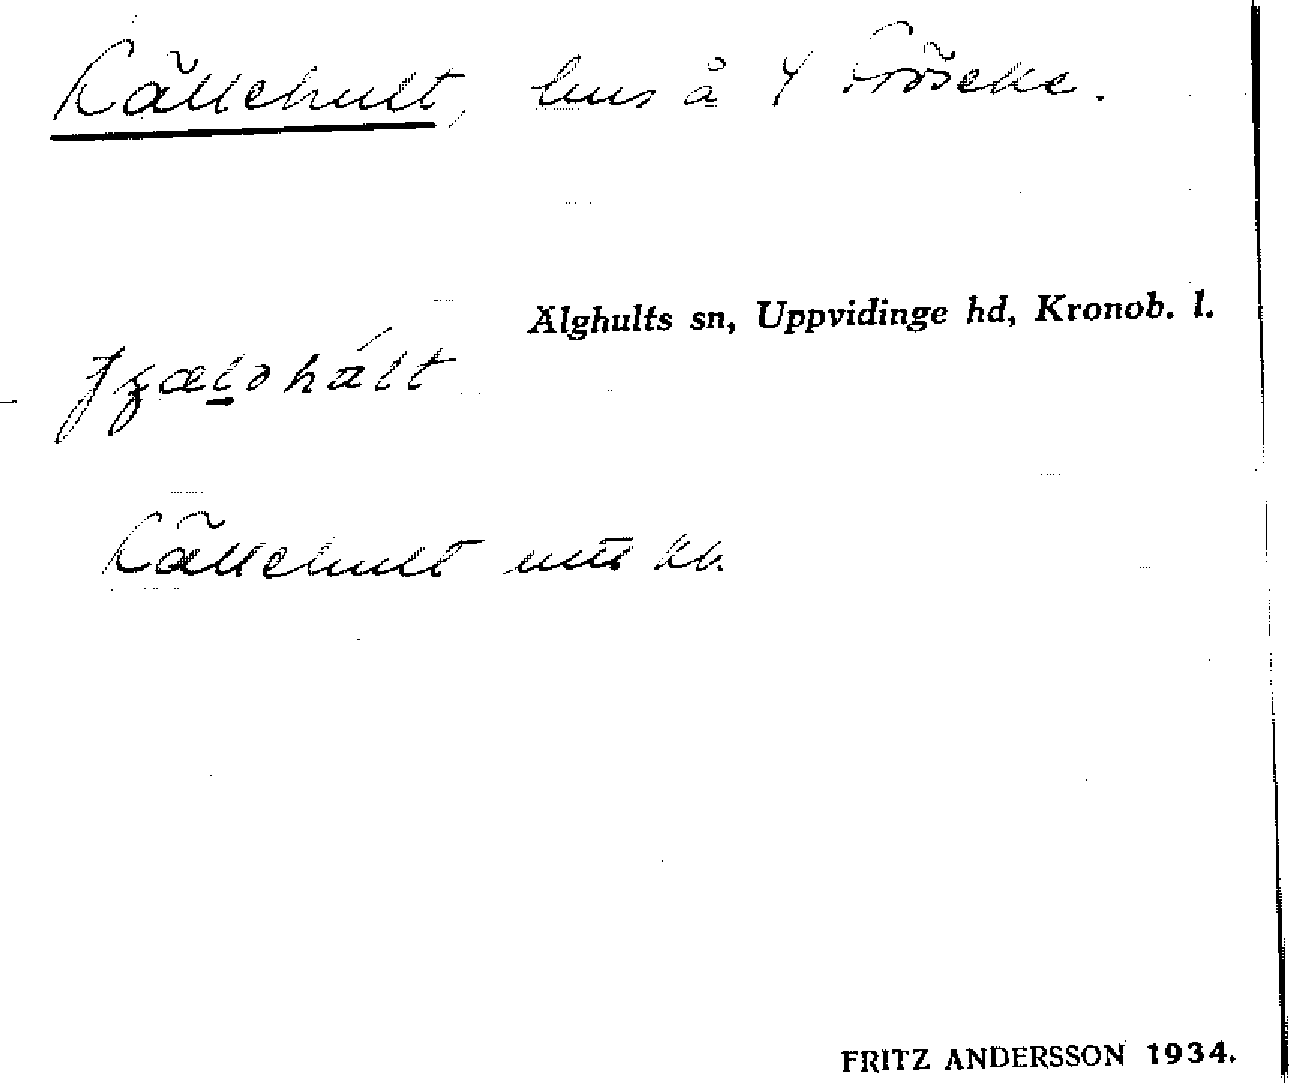 Källehult, hus å 4 Fröseke.
Älghults sn, Uppvidinge hd, Kronob. l.
Källehult utt kb.
FRITZ ANDERSSON 1934.